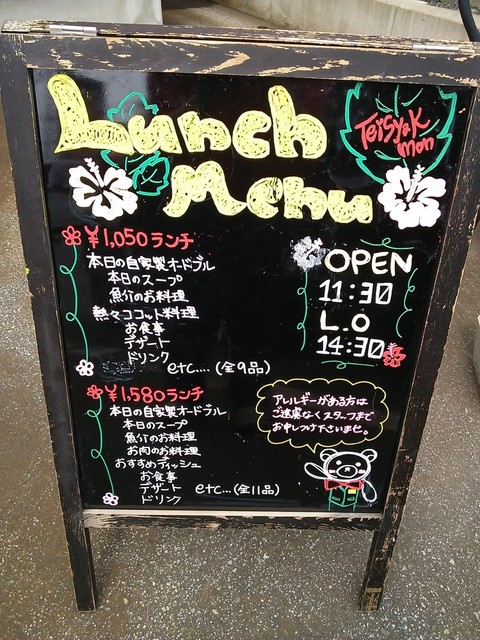 Lunch
Menu
Teisyak
mon
¥1,050ランチ
本日の自家製オードブル
本日のスープ
魚介のお料理
熱々ココット料理
お食事
デザート
ドリンク
etc....(全9品)
¥1,580ランチ
本日の自家製オードブル
本日のスープ
魚介のお料理
お肉のお料理
おすすめディッシュ
お食事
デザート
ドリンク
etc...(全11品)
OPEN
11:30
L.O
14:30
アレルギーがある方は
ご遠慮なくスタッフまで
お申しつけ下さいませ。